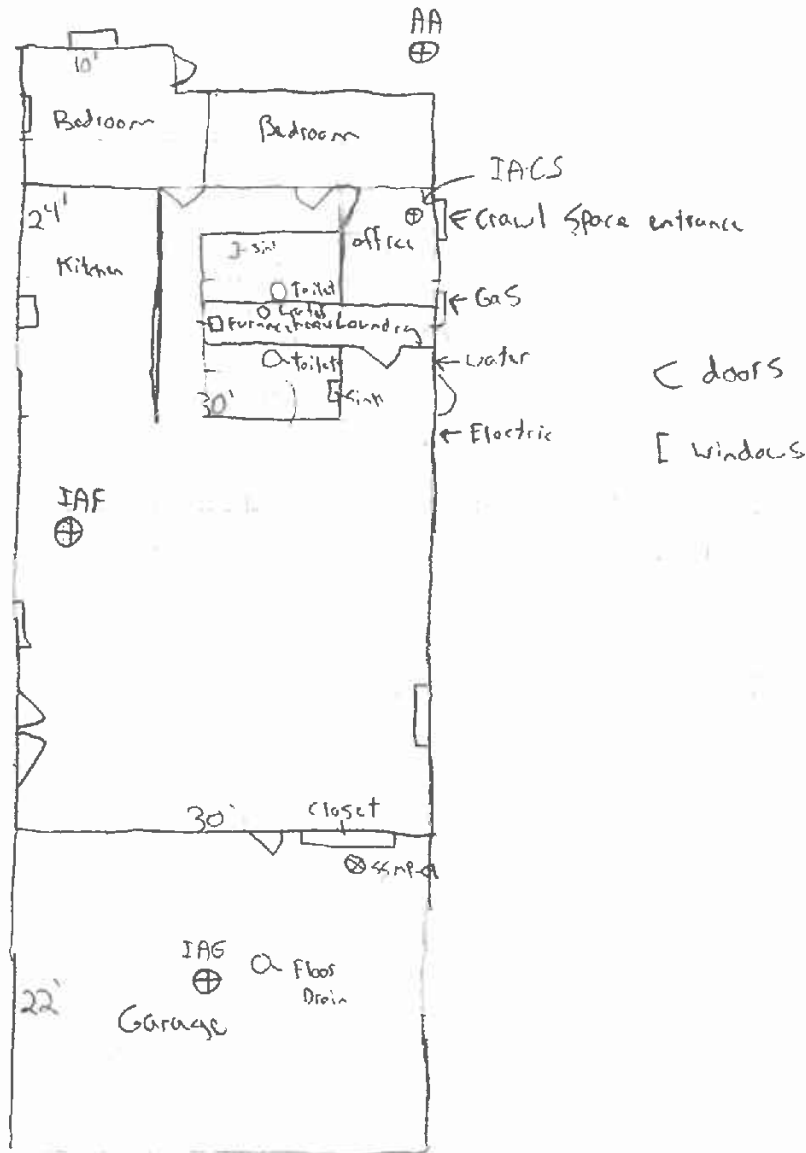 AA
10'
Bedroom
Bedroom
IACS
24'
Crawl Space entrance
office
Kitchen
Sink
Toilet
Gas
Furnace
Laundry
toilet
water
< doors
Sink
Electric
[ windows
IAF
30'
closet
IAG
Floor
Drain
22'
Garage